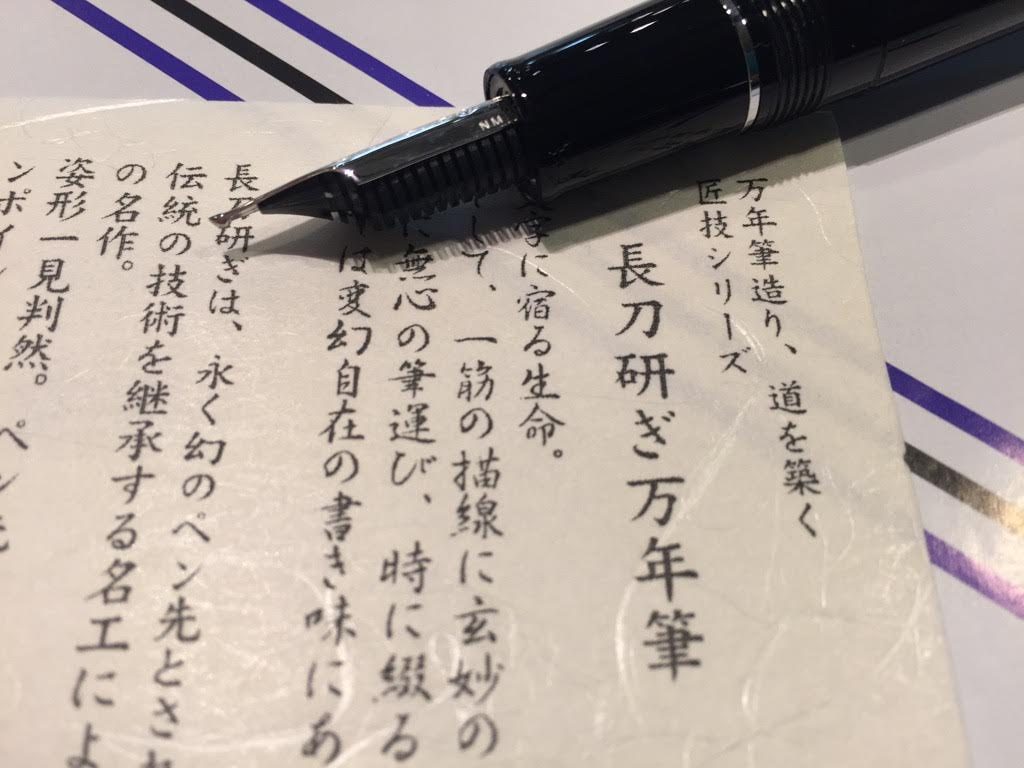 万年筆造り、道を築く
匠技シリーズ
長刀研ぎ万年筆
字に宿る生命。
して、一筋の描線に玄妙の
無心の筆運び、時に綴る
は変幻自在の書き味にあ
長刀研ぎは、永く幻のペン先とされ
伝統の技術を継承する名工によ
の名作。
姿形一見判然。ペン先
ンポイン
NM